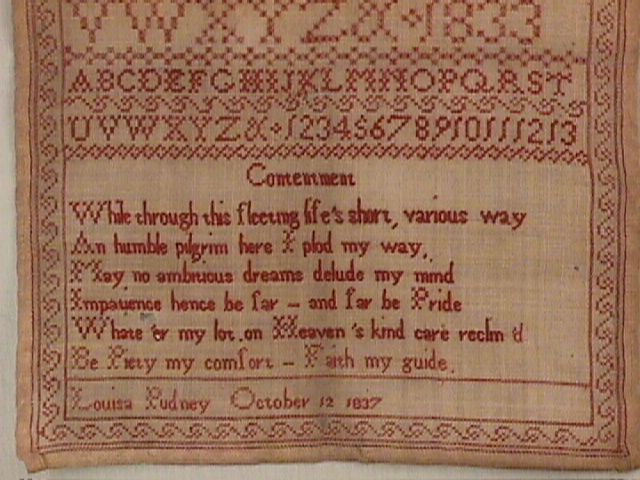 V W X Y Z & 1833
A B C D E F G H I J K L M N O P Q R S T
U V W X Y Z & 1 2 3 4 5 6 7 8 9 10 11 12 13
Contentment
While through this fleeting life's short, various way
An humble pilgrim here I plod my way,
May no ambitious dreams delude my mind
Impatience hence be far - and far be Pride
Whate 'er my lot on Heaven 's kind care reclin'd
Be Piety my comfort - Faith my guide.
Louisa Pudney October 12 1837